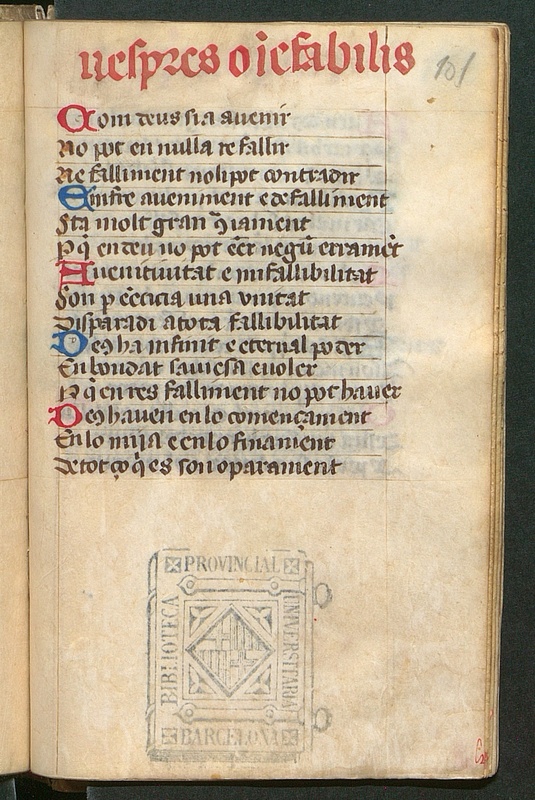 vespres o iefabilis
101
Com deus sia avenir
No pot en nulla re fallir
Ne falliment noli pot contradir
Enfre aveniment e de falliment
Sta molt gran ꝯiament
P q̄ en deu no pot eēr negū erramēt
Avenituitat e infallibilitat
Son p eēcicia una unitat
Disparada tota fallibilitat
Deus ha infinit e eternal poder
En bondat saviesa e voler
P q̄ en res falliment no pot haver
Deus haven en lo començament
En lo mija e en lo finament
De tot ço q̄ es son oparament
PROVINCIAL
BIBLIOTECA
UNIVERSITARIA
BARCELONA